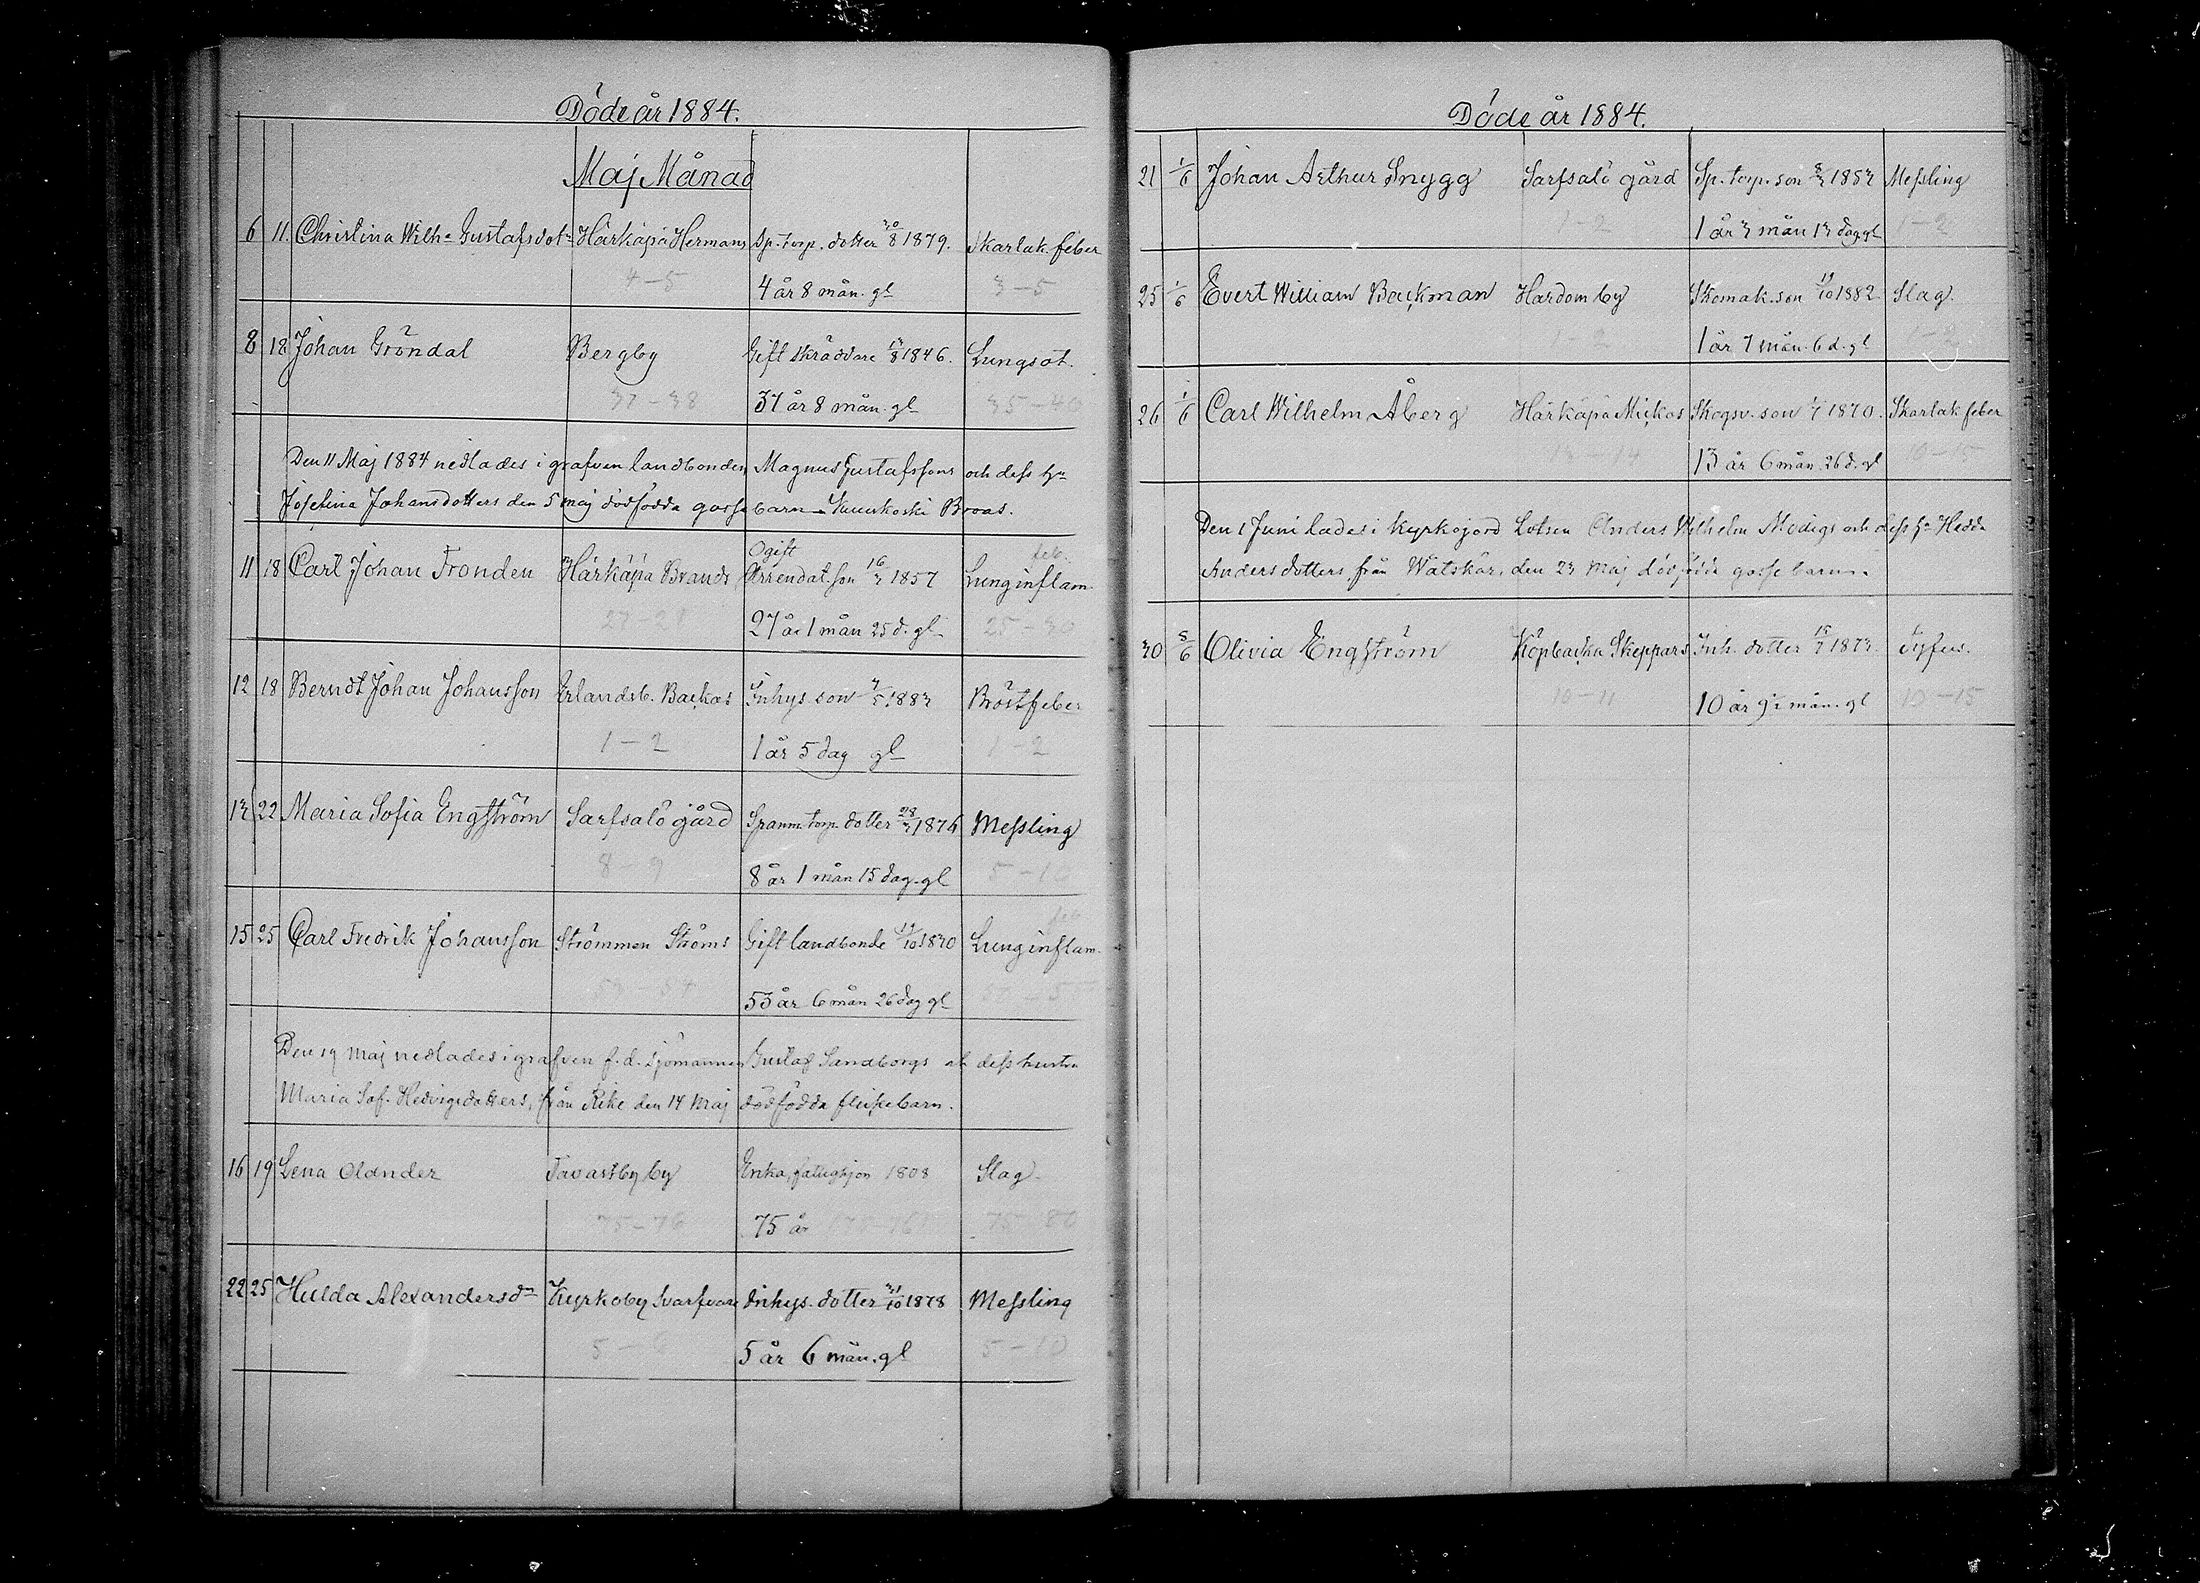 Döde år 1884.
Maj Månad
6 11. Christina Wilha Gustafsdotr Härkäpä Hermans Sp. torp. dotter 30/8 1879. Skarlak. feber
4-5 4 år 8 mån. gl 3-5
8 18 Johan Gröndal Bergby Gift skräddare 13/8 1846. Lungsot.
37-38 37 år 8 mån. gl 35-40
Den 11 Maj 1884 nedlades i grafven landbonden Magnus Gustafssons och dess hu
Josefina Johansdotters den 5 maj dödfödda gossebarn Kuuskoski Broas.
Ogift feb.
11 18 Carl Johan Fronden Härkäpä Brands Arrendat. son 16/3 1857 Lunginflam.
27-28 27 år 1 mån 25 d. gl 25-30
12 18 Berndt Johan Johansson Erlandsb. Backas Inhys son 7/5 1883 Bröstfeber
1-2 1 år 5 dag gl 1-2
13 22 Maria Sofia Engström Sarfsalö gård Spanm. torp dotter 28/3 1876 Messling
8-9 8 år 1 mån 15 dag. gl 5-10
feb.
15 25 Carl Fredrik Johansson Strömmen Ströms Gift landbonde 19/10 1830 Lunginflam.
53-54 53 år 6 mån 26 dag gl 50-55
Den 19 maj nedlades i grafven f. d. sjömannen Gustaf Sandborgs och dess hustru
Maria Sof. Hedvigsdotters, från Rike den 14 maj dödfödda flickebarn.
16 19 Lena Olander Tavastby by Enka, fattighjon 1808 Slag.
75-76 75 år 75-80
22 25 Hulda Alexandersdr Kyrkoby Svarfvars Inhys. dotter 31/10 1878 Messling
5-6 5 år 6 mån. gl 5-10
Döde år 1884.
21 1/6 Johan Arthur Snygg Sarfsalö gård Sp. torp. son 8/3 1883 Messling
1-2 1 år 3 mån 13 dag. gl 1-2
25 1/6 Evert William Backman Hardom by Skomak. son 19/10 1882. Slag.
1-2 1 år 7 mån. 6 d. gl 1-2
26 1/6 Carl Wilhelm Åberg Härkäpä Mickos Skogsv. son 1870. Skarlak feber
13-14 13 år 6 mån. 26 d. gl 10-15
Den 1 Juni lades i kyrkojord Lotsen Anders Wilhelm Modigs och dess hu Hedda
Andersdotters från Wåtskär, den 23 Maj dödfödda gossebarn.
30 8/6 Olivia Engström Köpbacka Skeppars Inh. dotter 15/7 1873. Tyfus.
10-11 10 år 9½ mån. gl 10-15